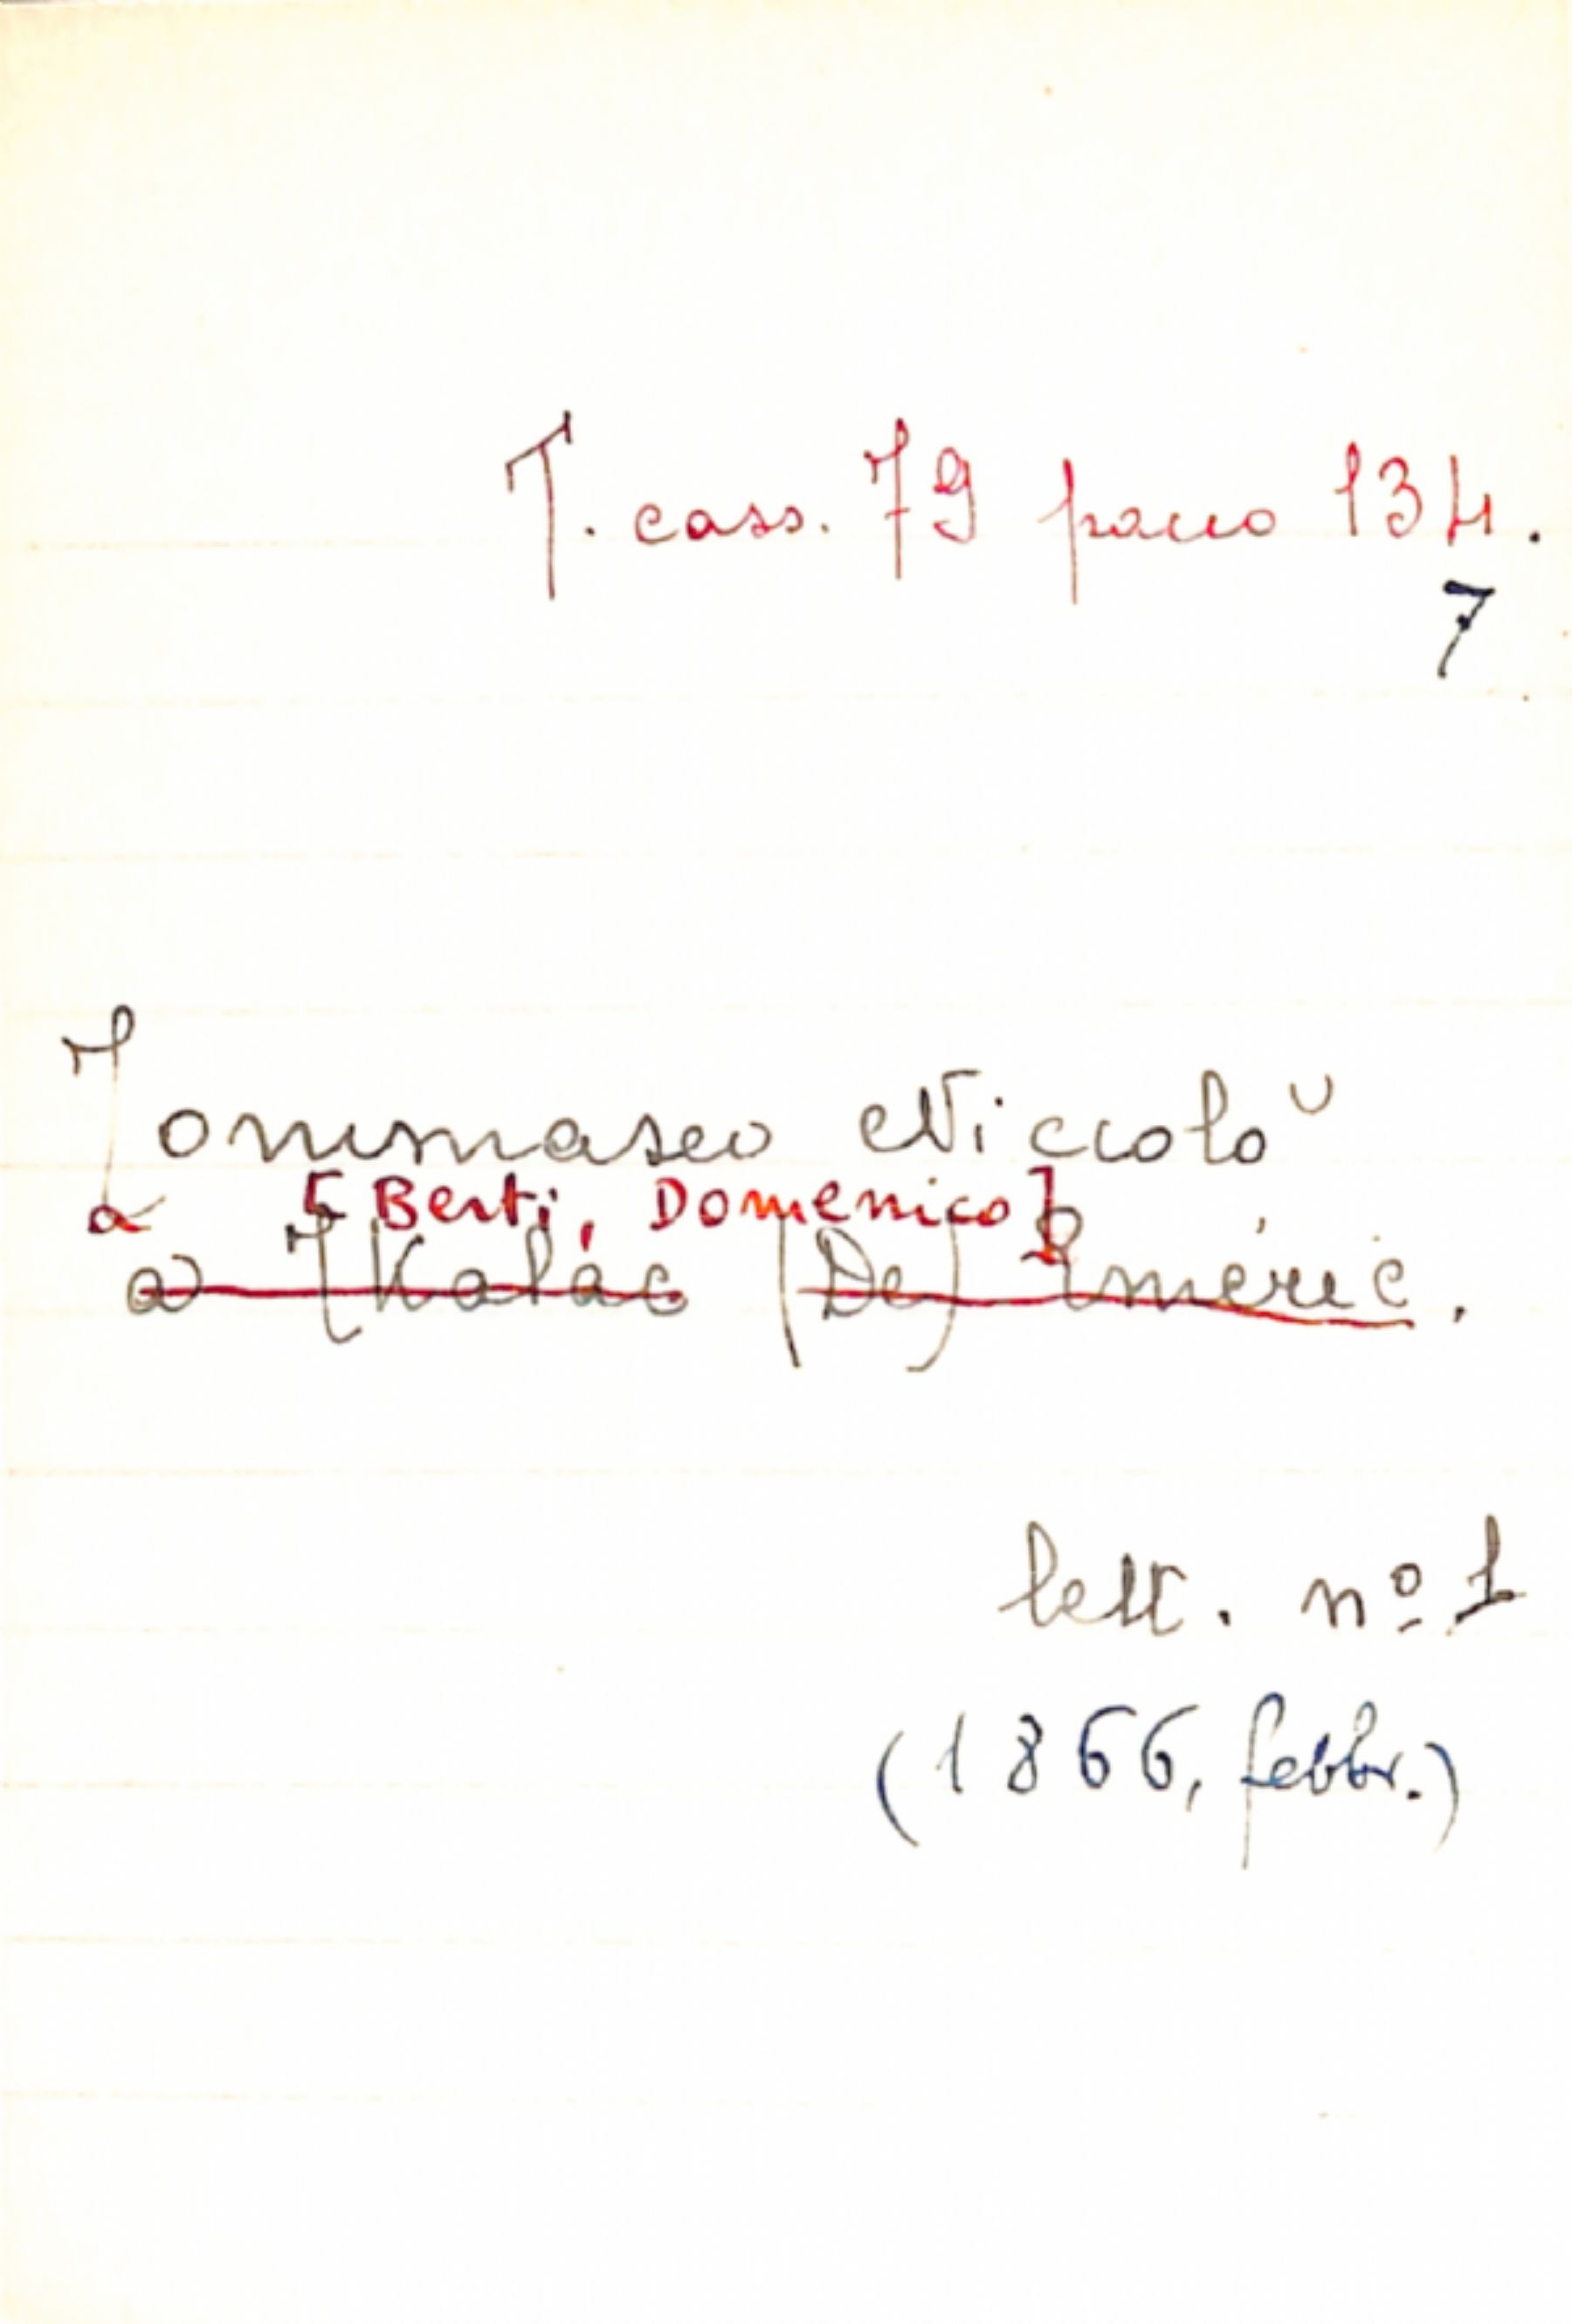 T. cass. 79 pacco 134.
7
Tommaseo Niccolò
a [Berti, Domenico]
a Tkalác (De) Emèric.
lett. nº 1
(1866, febbr.)